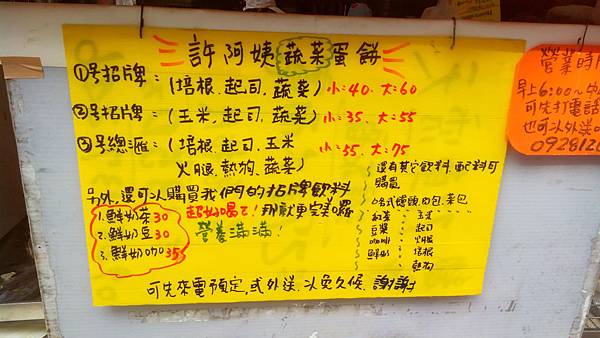 許阿姨蔬菜蛋餅
①号招牌:(培根.起司.蔬菜) 小=40. 大=60
②号招牌:(玉米.起司.蔬菜) 小=35. 大=55
③号總滙:(培根.起司.玉米
火腿.熱狗.蔬菜) 小=55. 大=75
另外.還可以購買我們的招牌飲料
1.鮮奶茶30
2.鮮奶豆30
3.鮮奶咖35
超好喝了!那就更完美囉
營養滿滿!
還有其它飲料.配料可
購買
各式饅頭.肉包.菜包.
紅茶 玉米
豆漿 起司
咖啡 火腿
鮮奶 培根
熱狗
可先來電預定.或外送.以免久候.謝謝
營業時
早上6:00~
可先打電話
也可以外送
0928120